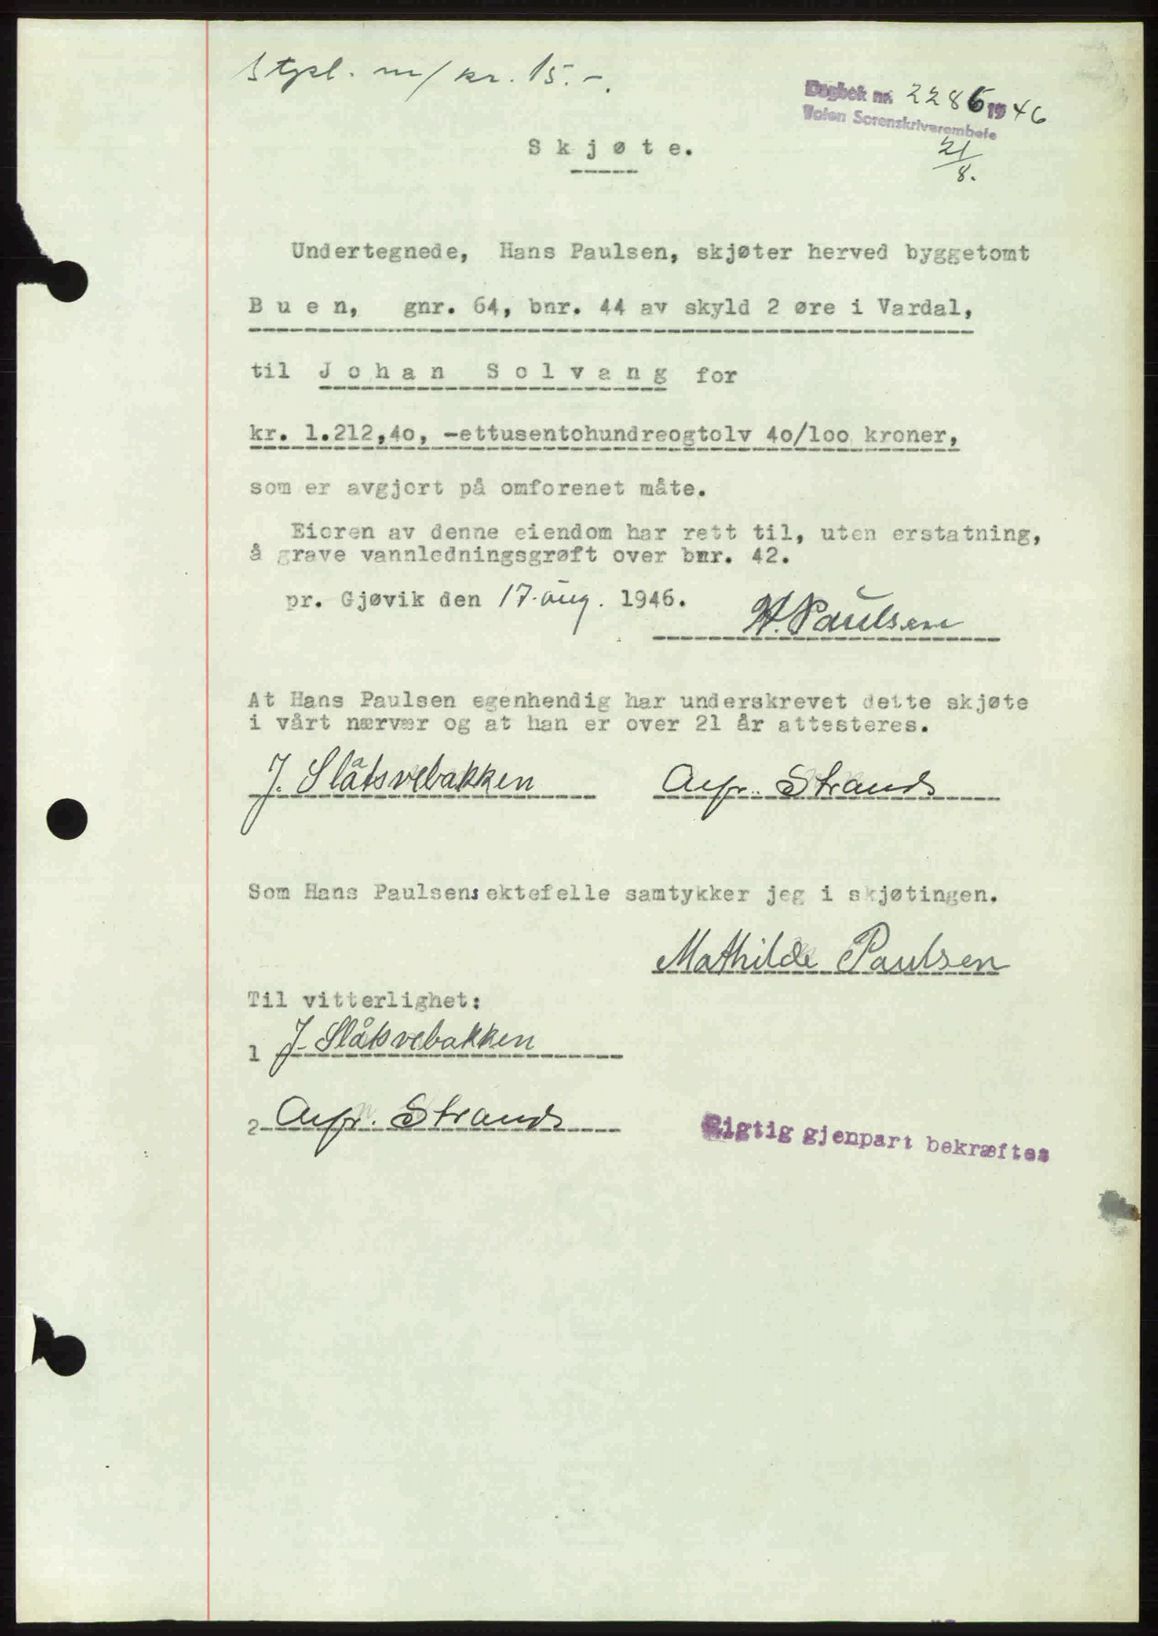 Stpl. m/ kr. 15.-.
Dagbok nr. 2286 1946
Toten Sorenskriverembete
21/8.
Skjøte.
Undertegnede, Hans Paulsen, skjøter herved byggetomt
Buen, gnr. 64, bnr. 44 av skyld 2 øre i Vardal,
til Johan Solvang for
kr. 1.212,4o, -ettusentohundreogtolv 4o/1oo kroner,
som er avgjort på omforenet måte.
Eieren av denne eiendom har rett til, uten erstatning,
å grave vannledningsgrøft over bnr. 42.
pr. Gjøvik den 17. aug. 1946.
H. Paulsen
At Hans Paulsen egenhendig har underskrevet dette skjøte
i vårt nærvær og at han er over 21 år attesteres.
J. Slåtsvebakken Strands
Som Hans Paulsens ektefelle samtykker jeg i skjøtingen.
Mathilde Paulsen
Til vitterlighet:
1 J. Slåtsvebakken
2 Strands
Rigtig gjenpart bekræftes